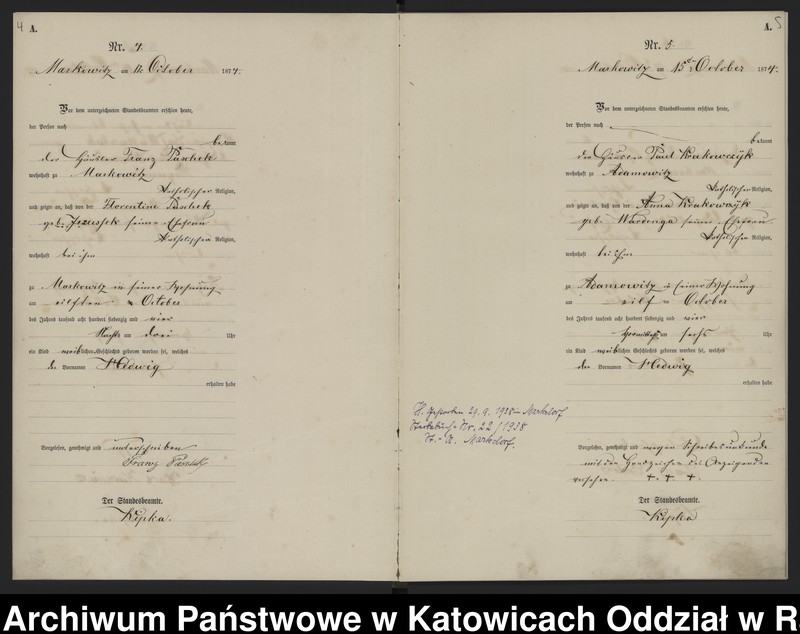 4 A.
Nr. 4.
Markowitz am 11. October 1874.
Vor dem unterzeichneten Standesbeamten erschien heute,
der Person nach
bekannt
der Häusler Franz Paschek
wohnhaft zu Markowitz
katholischer Religion,
und zeigte an, daß von der Florentine Paschek
geb. Jezussek seiner Ehefrau
katholischer Religion,
wohnhaft bei ihm
zu Markowitz in seiner Wohnung
am eilften October
des Jahres tausend acht hundert siebenzig und vier
Nachts um drei Uhr
ein Kind weiblichen Geschlechts geboren worden sei, welches
den Vornamen Hedwig
erhalten habe
Vorgelesen, genehmigt und unterschrieben
Franz
Der Standesbeamte.
Kipka.
A. 5
Nr. 5.
Markowitz am 15 October 1874.
Vor dem unterzeichneten Standesbeamten erschien heute,
der Person nach
bekannt
der Häusler Paul Krakowczyk
wohnhaft zu Adamowitz
katholischer Religion,
und zeigte an, daß von der Anna Krakowczyk
geb. Wardenga seiner Ehefrau
katholischer Religion,
wohnhaft bei ihm
zu Adamowitz in seiner Wohnung
am eilf October
des Jahres tausend acht hundert siebenzig und vier
Vormittags um sechs Uhr
ein Kind weiblichen Geschlechts geboren worden sei, welches
den Vornamen Hedwig
erhalten habe
H. gestorben 29.9.1938 in Markdorf
Sterbebuch Nr. 22/1938
St.-A. Markdorf.
Vorgelesen, genehmigt und wegen Schreibensunkunde
mit dem Handzeichen des Anzeigenden
versehen. + + +.
Der Standesbeamte.
Kipka
Archiwum Państwowe w Katowicach Oddział w R